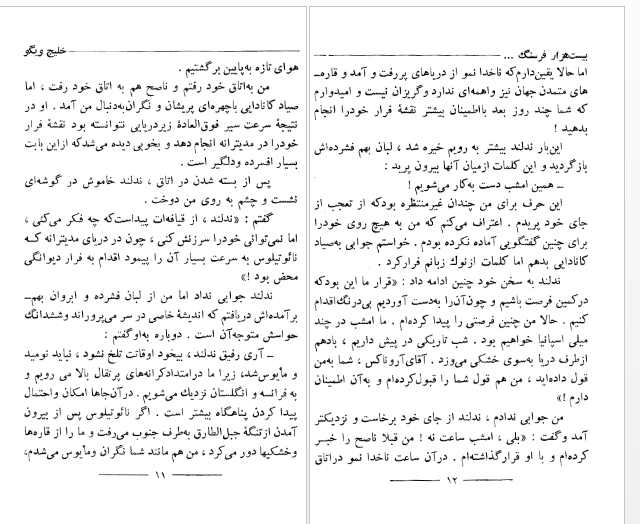 خلیج ویگو
هوای تازه به‌پایین برگشتیم .
من به‌اتاق خود رفتم و ناصح هم به اتاق خود رفت ، اما
صیاد کانادایی باچهره‌ای پریشان و نگران‌به‌دنبال من آمد . او در
نتیجهٔ سرعت سیر فوق‌العادهٔ زیردریایی نتوانسته بود نقشهٔ فرار
خودرا در مدیترانه انجام دهد و بخوبی دیده می‌شدکه ازاین بابت
بسیار افسرده ودلگیر است .
پس از بسته شدن در اتاق ، ندلند خاموش در گوشه‌ای
نشست و چشم به روی من دوخت .
گفتم : «ندلند ، از قیافه‌ات پیداست‌که چه فکر می‌کنی ،
اما نمی‌توانی خودرا سرزنش کنی ، چون در دریای مدیترانه کــه
نائوتیلوس به سرعت بسیار آن را پیمود اقدام به فرار دیوانگی
محض بود !»
ندلند جوابی نداد اما من از لبان فشرده و ابروان بهم‌ـ
برآمده‌اش دریافتم که اندیشهٔ خاصی در سر می‌پروراند وششدانگ
حواسش متوجه‌آن است . دوباره به‌اوگفتم :
ــ آری رفیق ندلند ، بیخود اوقاتت تلخ نشود ، نباید نومید
و مأیوس‌شد، زیرا ما درامتدادکرانه‌های پرتقال بالا می رویم و
به فرانسه و انگلستان نزدیک می‌شویم . درآن‌جاها امکان واحتمال
پیدا کردن پناهگاه بیشتر است . اگر نائوتیلوس پس از بیرون
آمدن ازتنگهٔ جبل‌الطارق به‌طرف جنوب می‌رفت و ما را از قاره‌ها
وخشکیها دور می‌کرد ، من هم مانند شما نگران ومأیوس می‌شدم،
۱۱
بیست‌هزار فرسنگ ...
اما حالا یقین‌دارم‌که ناخدا نمو از دریاهای پررفت و آمد و قاره‌ـ
های متمدن جهان نیز واهمه‌ای ندارد وگریزان نیست و امیدوارم
که شما چند روز بعد بااطمینان بیشتر نقشهٔ فرار خودرا انجام
بدهید !
این‌بار ندلند بیشتر به رویم خیره شد ، لبان بهم فشرده‌اش
بازگردید و این کلمات ازمیان آنها بیرون پرید :
ــ همین امشب دست به‌کار می‌شویم !
این حرف برای من چندان غیرمنتظره بودکه از تعجب از
جای خود پریدم . اعتراف می‌کنم که من به هیچ روی خودرا
برای چنین گفتگویی آماده نکرده بودم . خواستم جوابی به‌صیاد
کانادایی بدهم اما کلمات ازنوک زبانم فرارکرد .
ندلند به سخن خود چنین ادامه داد : «قرار ما این بودکه
درکمین فرصت باشیم و چون‌آن‌را به‌دست آوردیم بی‌درنگ‌اقدام
کنیم . حالا من چنین فرصتی را پیدا کرده‌ام . ما امشب در چند
میلی اسپانیا خواهیم بود . شب تاریکی در پیش داریم ، بادهم
ازطرف دریا به‌سوی خشکی می‌وزد . آقای‌آروناکس ، شما به‌من
قول داده‌اید ، من هم قول شما را قبول‌کرده‌ام و به‌آن اطمینان
دارم !»
من جوابی ندادم ، ندلند از جای خود برخاست و نزدیکتر
آمد وگفت : «بلی ، امشب ساعت نه ! من قبلا ناصح را خبــر
کرده‌ام و با او قرارگذاشته‌ام . درآن ساعت ناخدا نمو دراتاق
۱۲